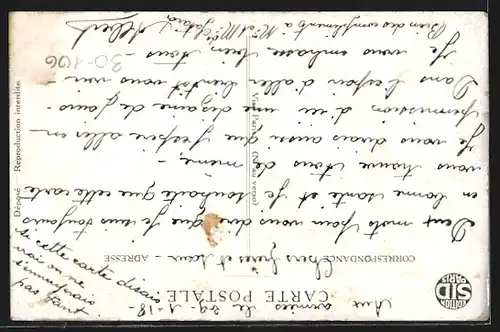 Aux armées le 29-1-18-
CARTE POSTALE
Chers frères et sœur -
CORRESPONDANCE
ADRESSE
Deux mots pour vous dire que je suis toujours
en bonne santé et je souhaite que cette carte
vous trouve tous de même, -
Je vous dirais aussi que j'espère aller en
permission d'ici une dizaine de jours -
Dans l'espoir d'aller bientôt vous voir
Je vous embrasse bien tous -
Albert
Bien des compliments à Mr et Mme
si cette carte disais
vrai on ne
s'ennuyrais
pas tant.
30-106
Visé Paris (No au verso)
Déposé - Reproduction interdite.
EDITION
SID
PARIS